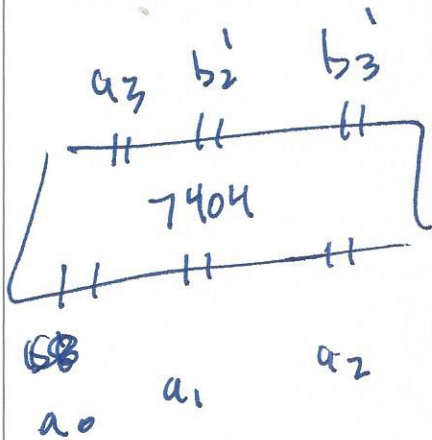 a3 b2' b3'
7404
a0 a1 a2